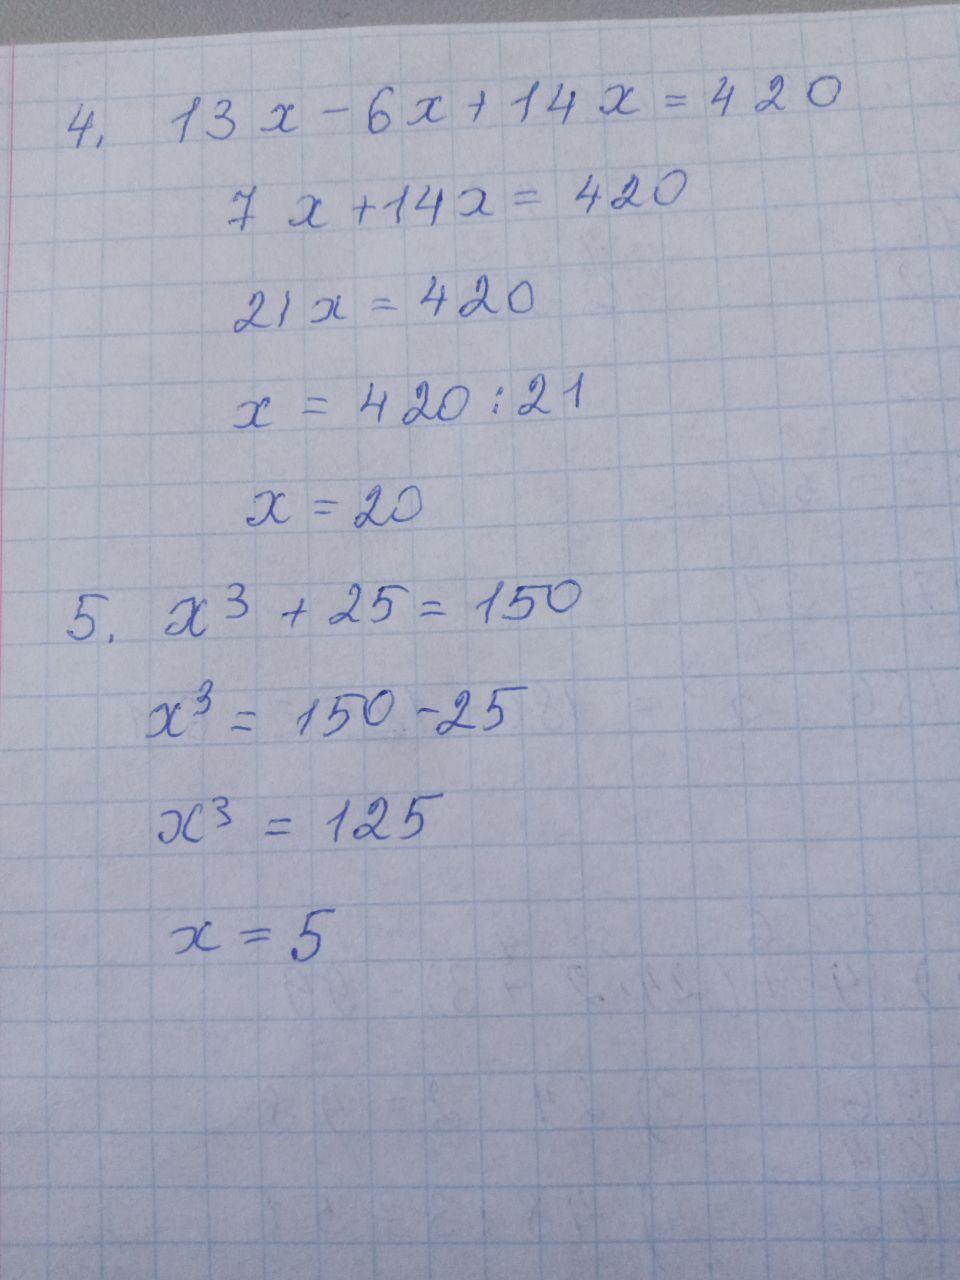 4. 13x - 6x + 14x = 420
7x + 14x = 420
21x = 420
x = 420 : 21
x = 20
5. x³ + 25 = 150
x³ = 150 - 25
x³ = 125
x = 5